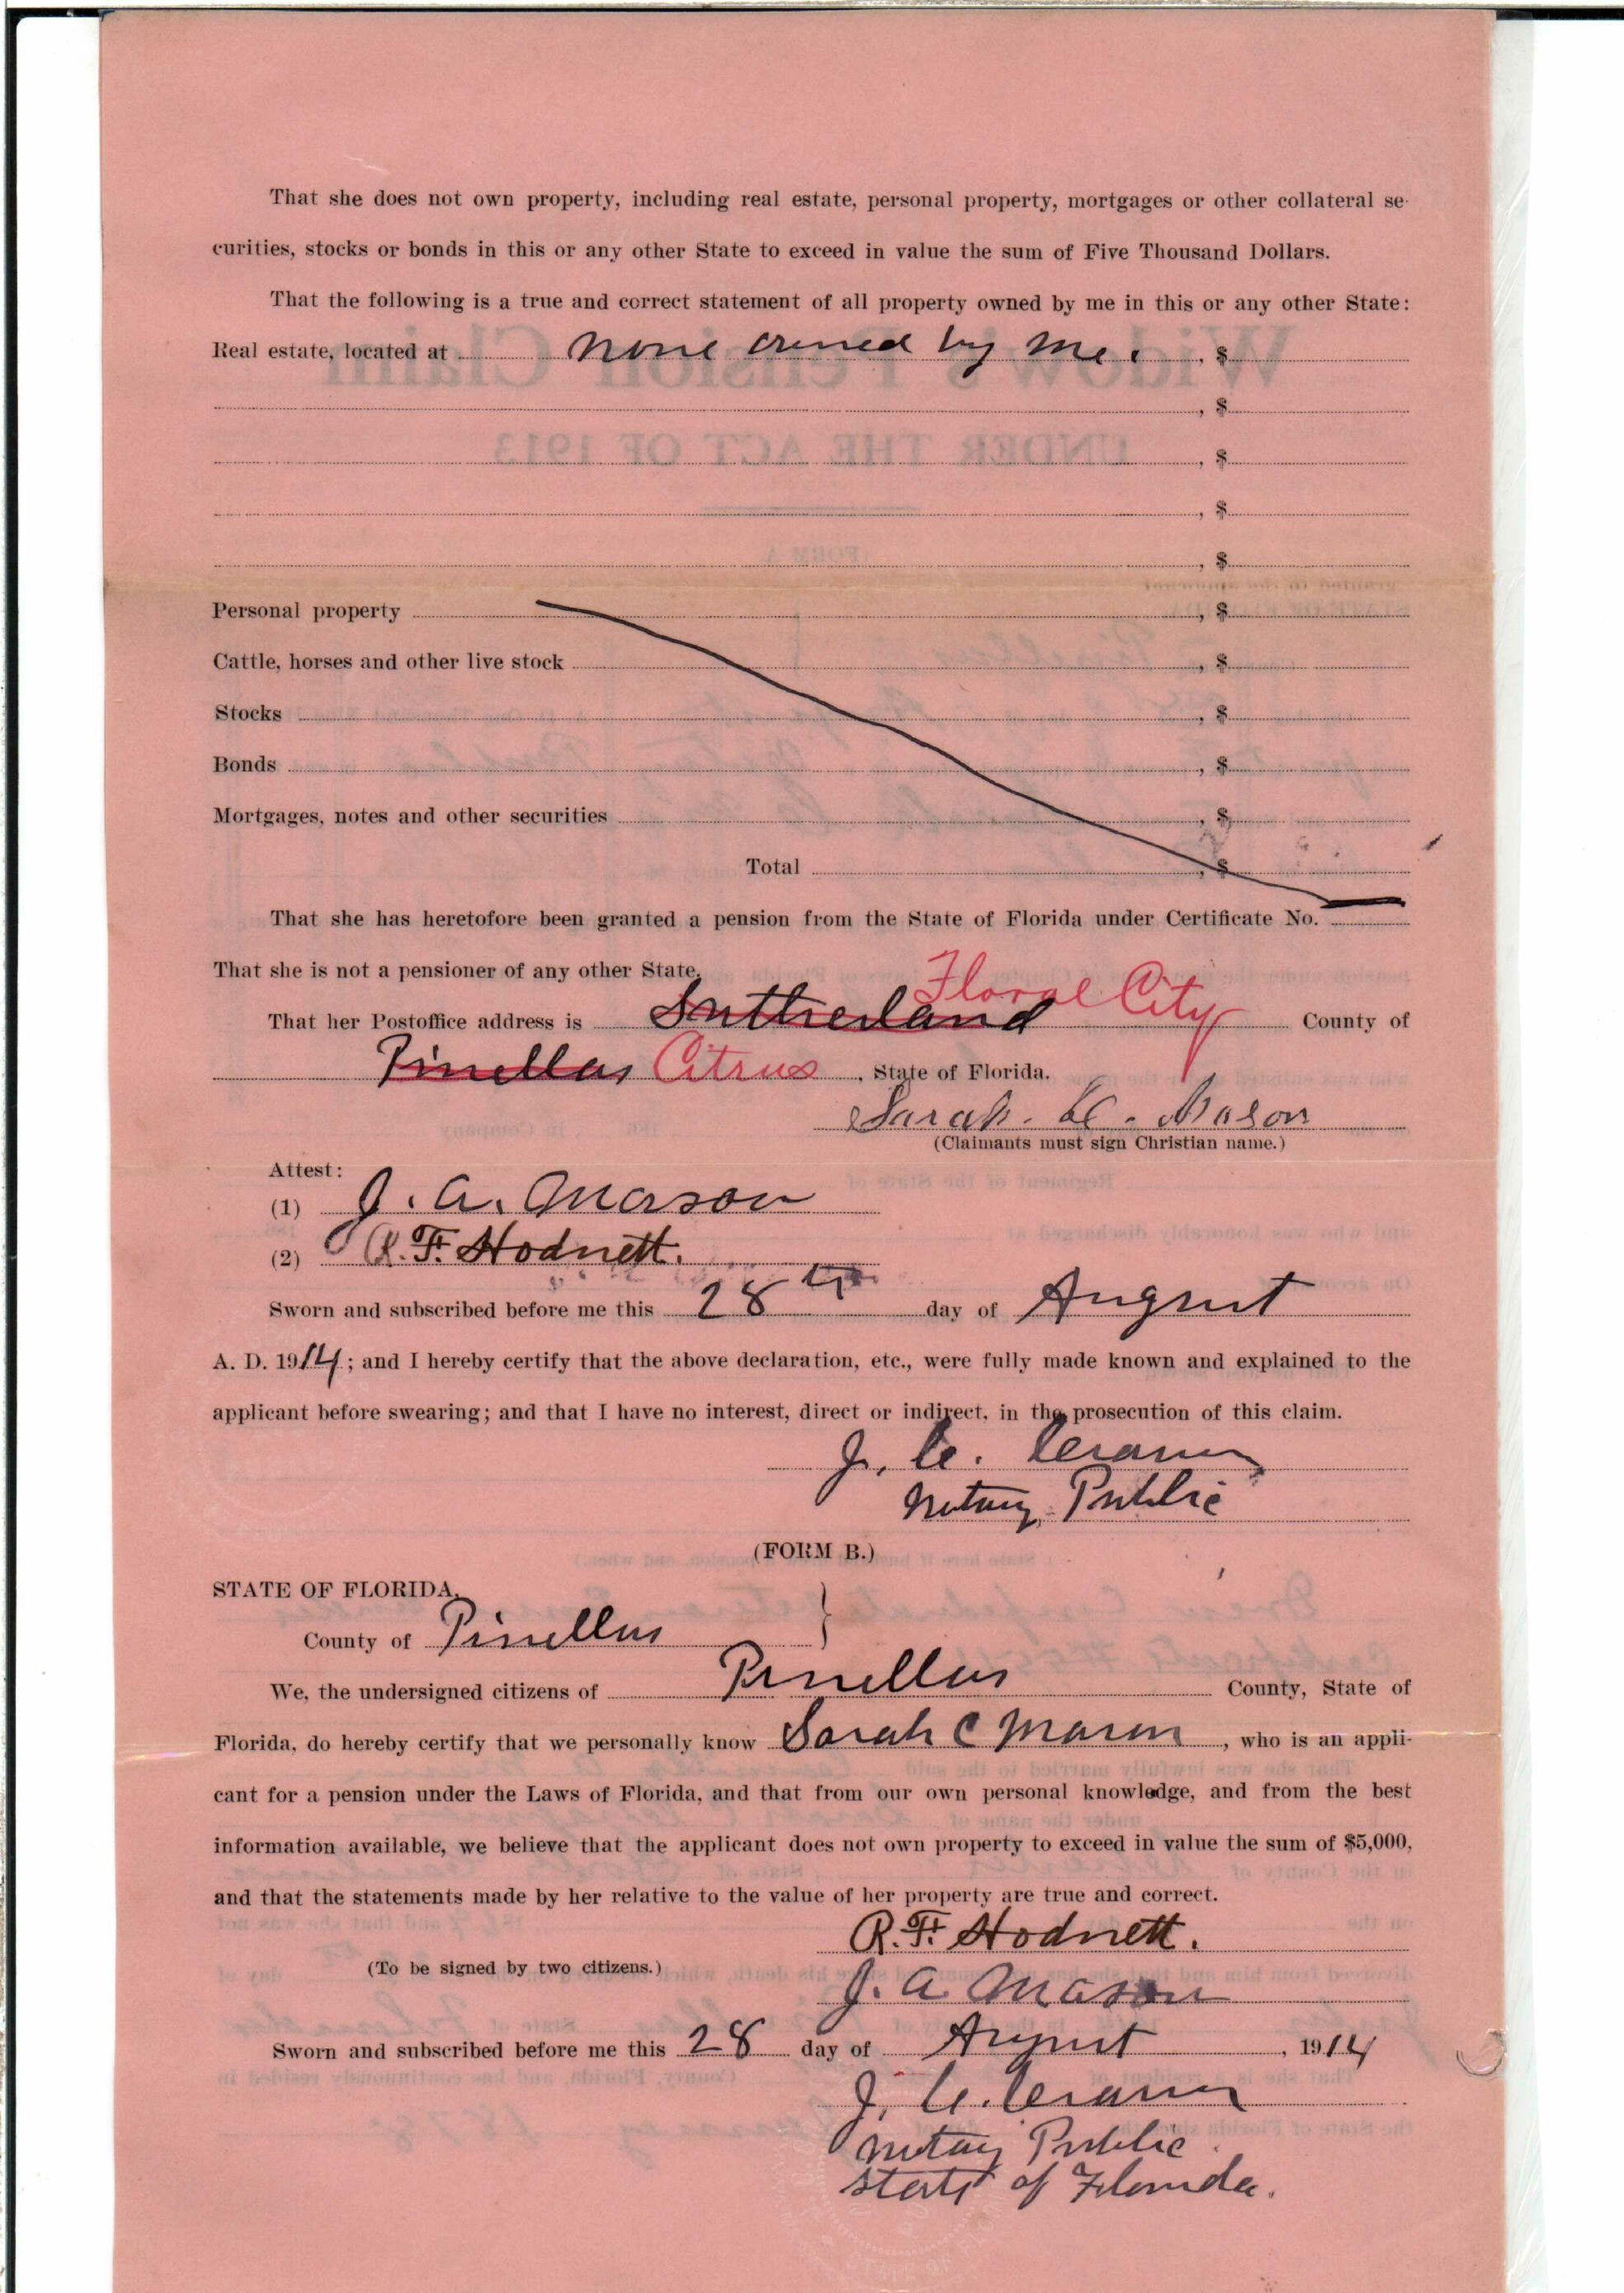 That she does not own property, including real estate, personal property, mortgages or other collateral se-
curities, stocks or bonds in this or any other State to exceed in value the sum of Five Thousand Dollars.
That the following is a true and correct statement of all property owned by me in this or any other State:
Real estate, located at none owned by me. , $
, $
, $
, $
, $
Personal property , $
Cattle, horses and other live stock , $
Stocks , $
Bonds , $
Mortgages, notes and other securities , $
Total , $
That she has heretofore been granted a pension from the State of Florida under Certificate No.
That she is not a pensioner of any other State.
Floral City
That her Postoffice address is Sutherland County of
Pinellas Citrus , State of Florida.
Sarah. C. Mason
(Claimants must sign Christian name.)
Attest:
(1) J. A. Mason
(2) R. F. Hodnett.
Sworn and subscribed before me this 28th day of August
A. D. 1914; and I hereby certify that the above declaration, etc., were fully made known and explained to the
applicant before swearing; and that I have no interest, direct or indirect, in the prosecution of this claim.
J. C. Craver
Notary Public
(FORM B.)
STATE OF FLORIDA,
County of Pinellas }
We, the undersigned citizens of Pinellas County, State of
Florida, do hereby certify that we personally know Sarah C Mason , who is an appli-
cant for a pension under the Laws of Florida, and that from our own personal knowledge, and from the best
information available, we believe that the applicant does not own property to exceed in value the sum of $5,000,
and that the statements made by her relative to the value of her property are true and correct.
R. F. Hodnett.
(To be signed by two citizens.)
J. A Mason
Sworn and subscribed before me this 28 day of August , 1914
J. C. Craver
Notary Public
State of Florida.